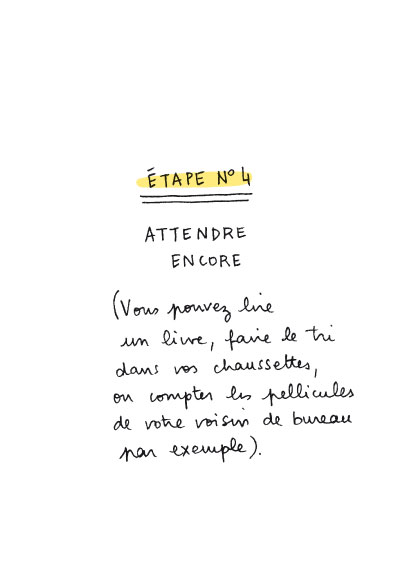 ÉTAPE N° 4
ATTENDRE
ENCORE
(Vous pouvez lire
un livre, faire le tri
dans vos chaussettes,
ou compter les pellicules
de votre voisin de bureau
par exemple).